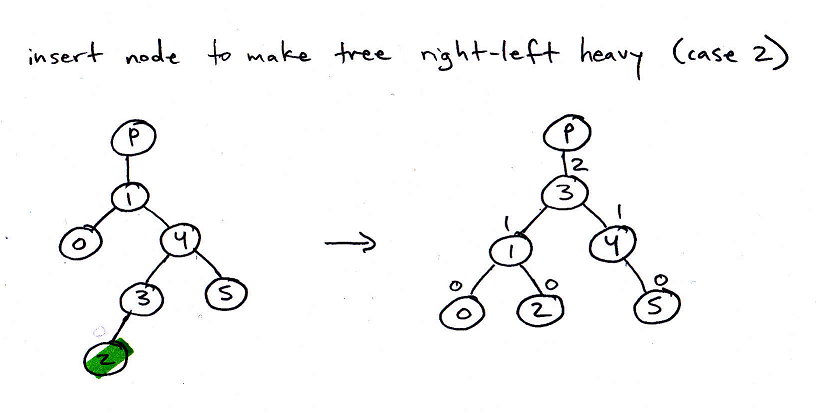 insert node to make tree right-left heavy (case 2)
P
1
0
4
3
5
0
2
→
P
2
3
1
1
1
4
0
0
0
0
2
5